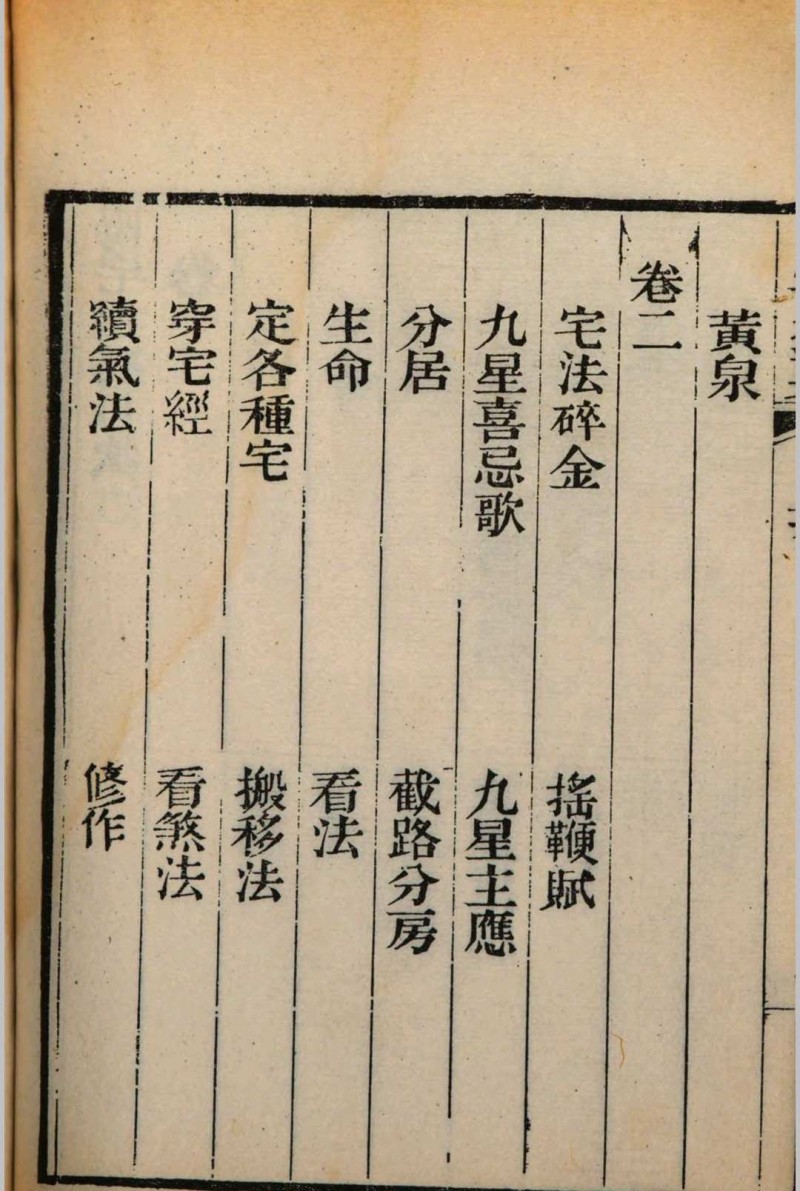 黃泉
卷二
宅法碎金　搖鞭賦
九星喜忌歌　九星主應
分居　截路分房
生命　看法
定各種宅　搬移法
穿宅經　看煞法
續氣法　修作